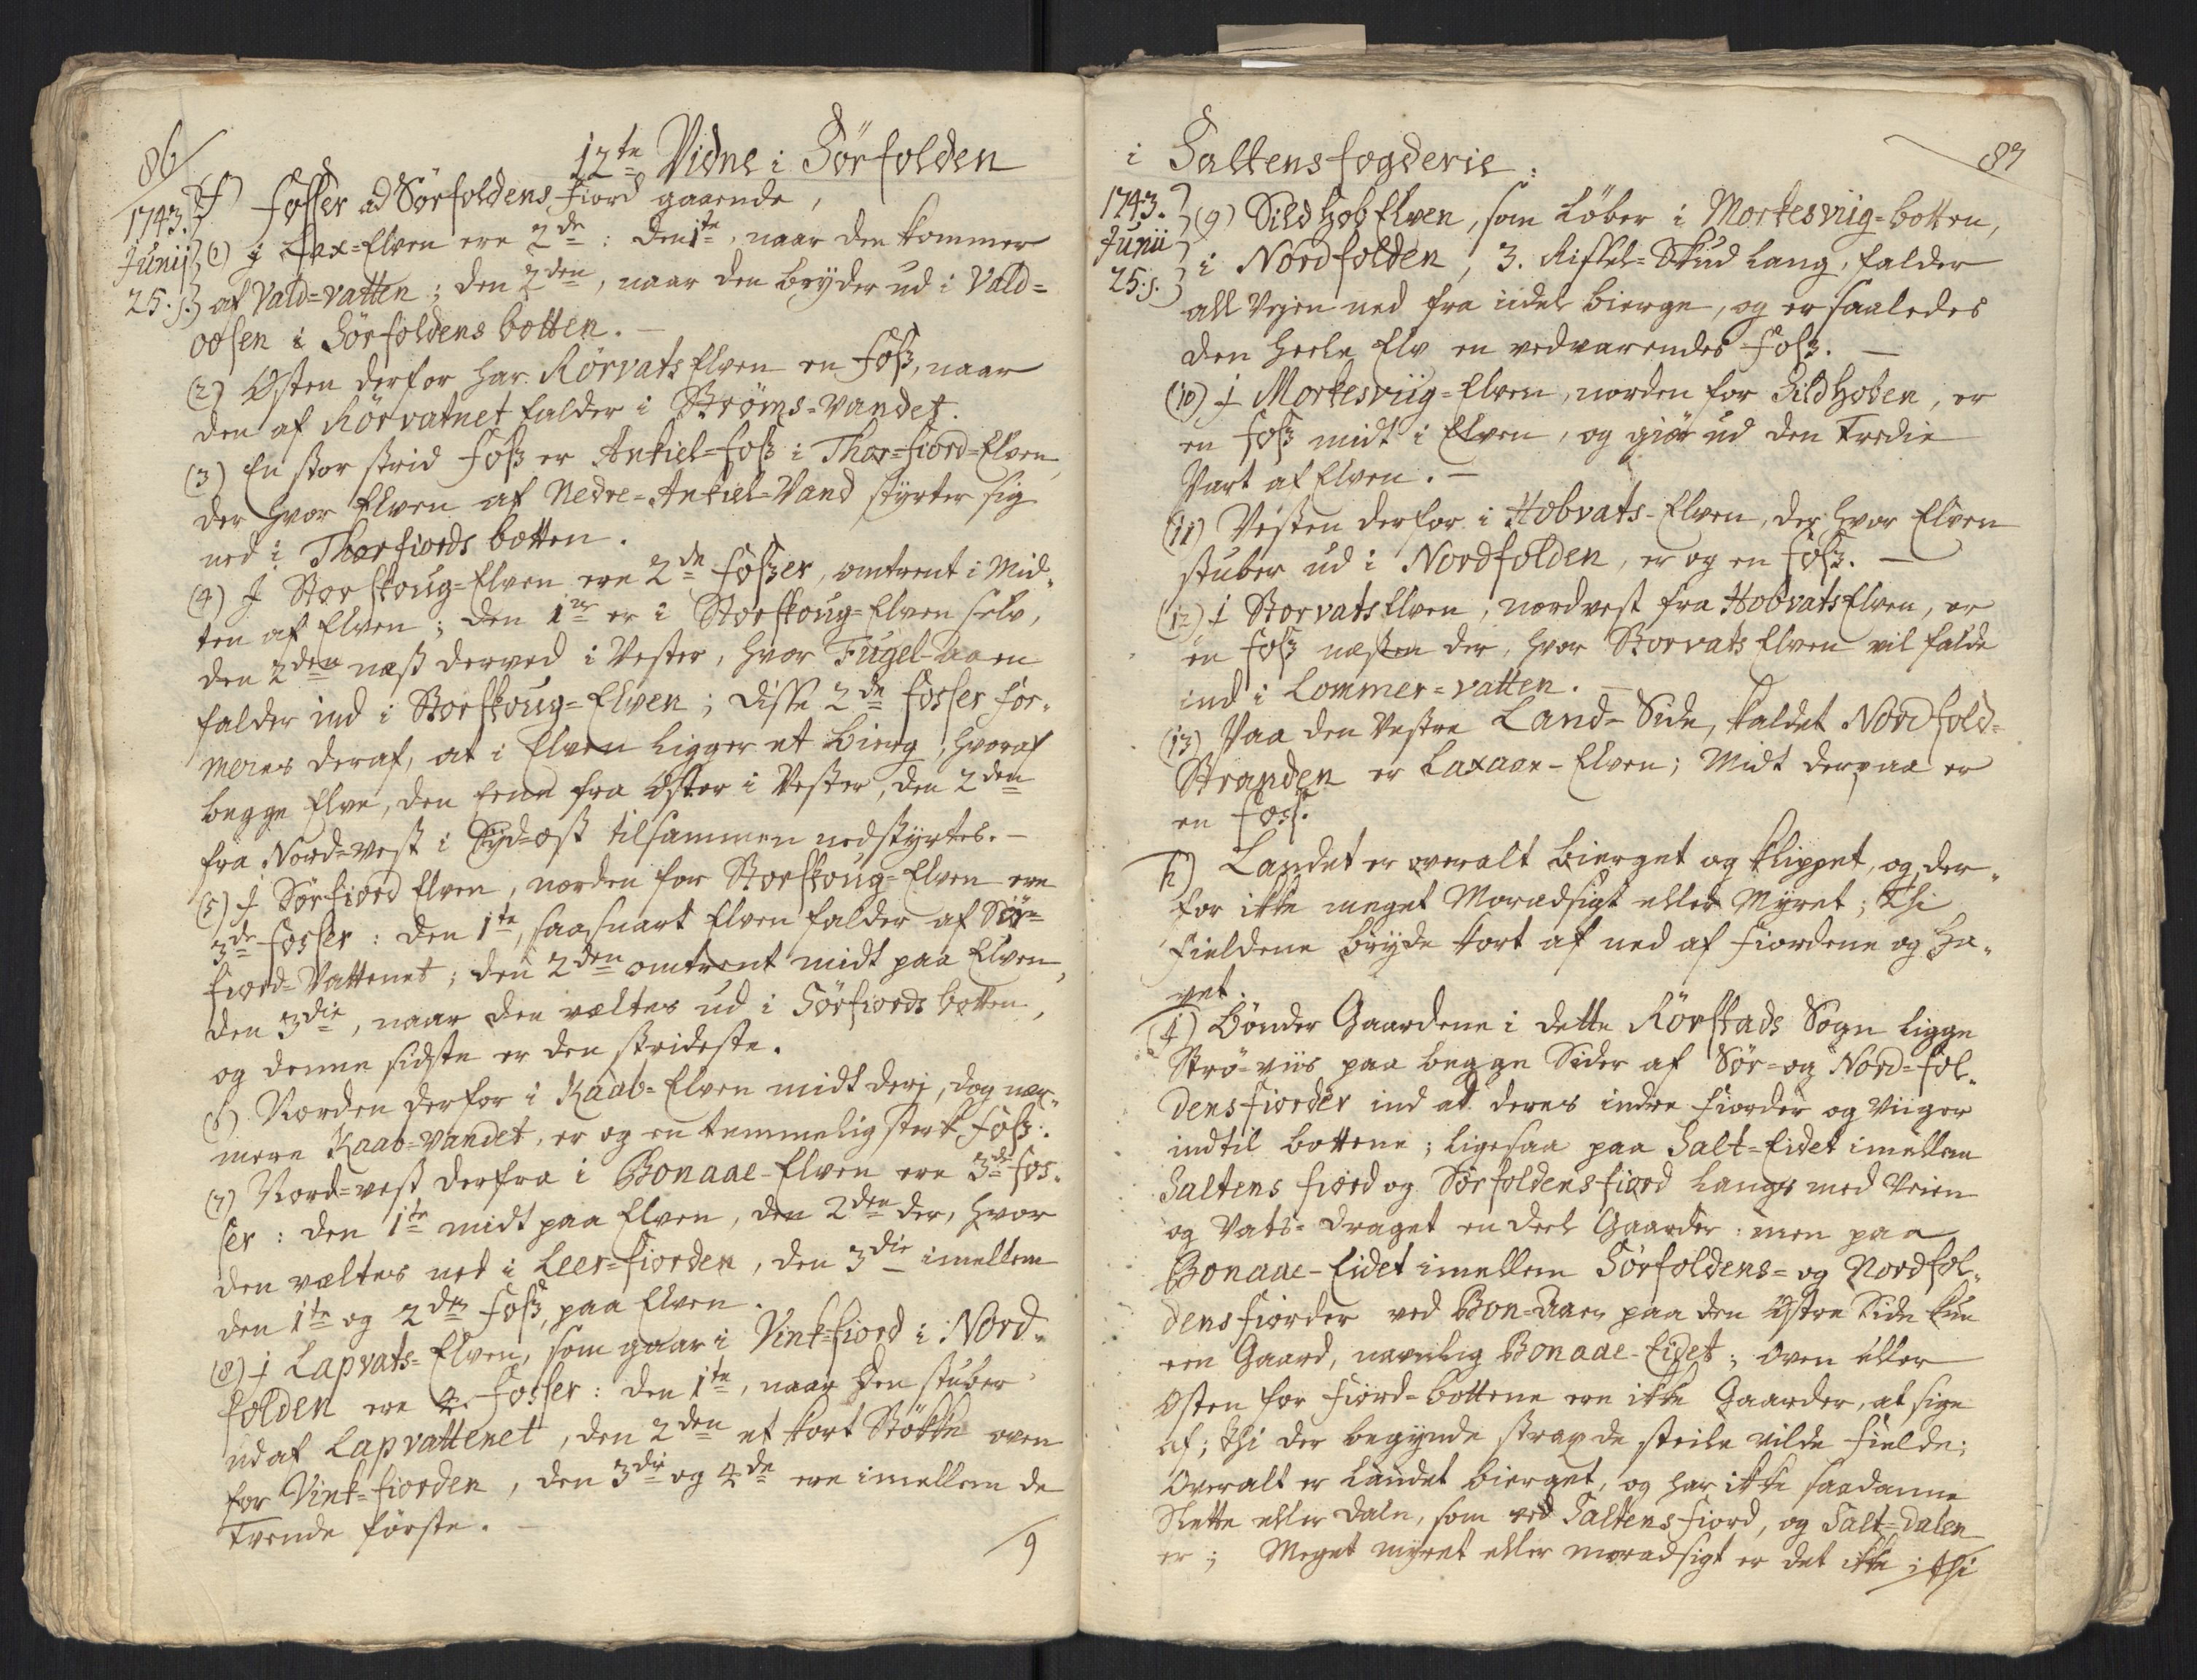 86
12te Vidne i Sörfolden
1743.
Junij
25. s.
f) Fosser ad Sörfoldens Fiord gaaende,
(1) i Lax=Elven ere 2de: den 1te, naar den kommer
af Vald=vatten; den 2den, naar den bryder ud i Vald=
oosen i Sörfoldens botten. –
(2) Østen derfor har Rörvats Elven en Foss, naar
den af Rörvatnet falder i Ströms=vandet.
(3) En stor strid Foss er Ankiel=foss i Thor=fiord=Elven,
der hvor Elven af Nedre=Ankiel=Vand styrter sig
ned i Thorfiords botten.
(4) I Storskoug=Elven ere 2de Fosser, omtrent i Mid=
ten af Elven; den 1te er i Storskoug=Elven selv,
den 2den næst derved i Vester, hvor Fugel-aaen
falder ind i Storskoug=Elven; disse 2de Fosser for=
meres deraf, at i Elven ligger et bierg, hvoraf
begge Elve, den Eene fra Øster i Vester, den 2den
fra Nord=vest i Syd=ost tilsammen nedstyrtes. –
(5) I Sörfiord Elven, norden for Storskoug=Elven ere
3de Fosser: den 1te, saasnart Elven falder af Sör=
fiord=Vattenet; den 2den omtrent midt paa Elven,
den 3die, naar den væltes ud i Sörfiords botten,
og denne sidste er den strideste.
(6) Norden derfor i Kaab=Elven midt deri, dog nær=
mere Kaab=vandet, er og en temmelig sterk Foss.
(7) Nord=vest derfra i Bonaae-Elven ere 3de Fos=
ser: den 1te midt paa Elven, den 2den der, hvor
den væltes ned i Leer=fiorden, den 3die imellem
den 1te og 2den Foss, paa Elven.
(8) I Lapvats=Elven, som gaar i Vink=fiord i Nord=
folden ere 4. Fosser: den 1te, naar den stuber
ud af Lapvattenet, den 2den et kort Støkke oven
for Vink=fiorden, den 3die og 4de ere imellem de
tvende første. –
9
i Saltens fogderie:
87
1743.
Junii
25. s.
(9) Sild Hob Elven, som løber i Morkesviig=botten,
i Nordfolden, 3. Riffel=Skud lang, falder
all Vejen ned fra idel bierge, og er saaledes
den heele Elv en vedvarendes Foss. –
(10) I Morkesviig=Elven, norden for SildHoben, er
en Foss midt i Elven, og giör ud den tredie
Part af Elven. –
(11) Vesten derfor i Hobvats-Elven, der hvor Elven
stuber ud i Nordfolden, er og en Foss. –
(12) I Storvats Elven, nordvest fra Hobvats Elven, er
en Foss næsten der, hvor Storvats Elven vil falde
ind i Lommer=vatten. –
(13) Paa den Vestre Land-Side, kaldet Nordfold=
Stranden er Laxaae-Elven; Midt derpaa er
en Foss.
h) Landet er overalt bierget og klippet, og der=
for ikke meget Moradsigt eller Myret; thi
Fieldene bryde kort af ned af Fiordene og Ha=
vet.
i) Bønder Gaardene i dette Rörstads Sogn ligge
Strø-viis paa begge Sider af Sör- og Nord=fol=
dens fiorder ind ad deres indre Fiorder og Viiger
indtil bottene; ligesaa paa Salt=Eidet imellem
Saltens fiord og Sörfoldens fiord langs med Veien
og Vats=draget en deel Gaarder: men paa
Bonaae-Eidet imellem Sörfoldens= og Nordfol=
dens fiorder ved Bon-Aaen paa den Østre Side kun
een Gaard, navnlig Bonaae-Eidet; Oven eller
Østen for Fiord=bottene ere ikke Gaarder, at sige
af; thi der begynde strax de steile vilde Fielde;
Overalt er Landet bierget, og har ikke saadanne
Slette eller dale, som ved Saltens fiord, og Salt=dalen
er; Meget myret eller moradsigt er det ikke; thi